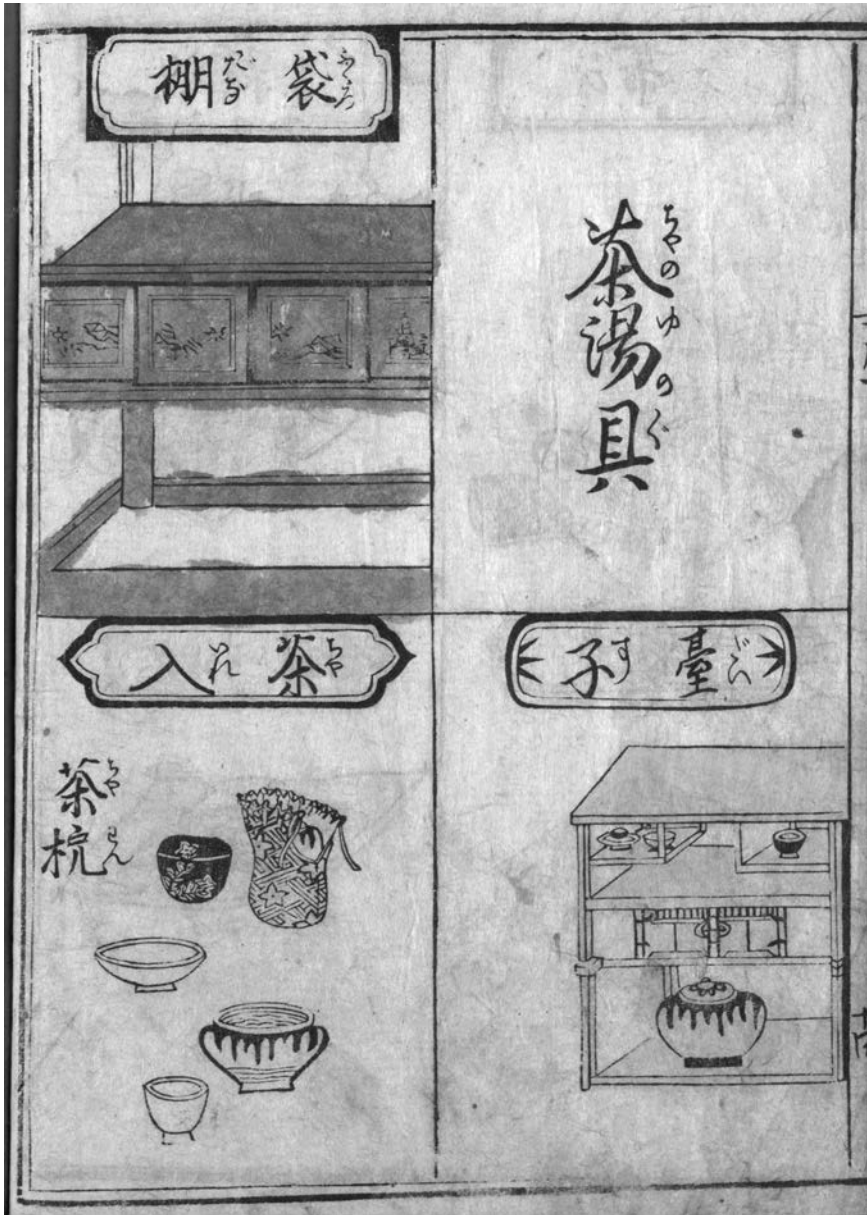 茶湯具
ちやのゆのぐ
臺子
だいす
袋棚
ふくろだな
茶入
ちやいれ
茶椀
ちやわん